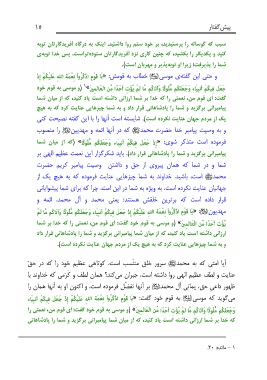 پیش‌گفتار ۱۵
سبب که گوساله را پرستیدید، بر خود ستم روا داشتید. اینک به درگاه آفریدگارتان توبه
کنید و یکدیگر را بکشید، که چنین کاری نزد آفریدگارتان ستوده‌تر است. پس خدا توبه‌ی
شما را پذیرفت؛ زیرا او توبه‌پذیر و مهربان است).
و حتی این گفته‌ی موسی خطاب به قومش: «يا قَوْمِ اذْكُرُوا نِعْمَةَ اللهِ عَلَيْكُمْ إِذْ
جَعَلَ فِيكُمْ أَنْبِياءَ وَجَعَلَكُمْ مُلُوكًا وَآتاكُمْ ما لَمْ يُؤْتِ أَحَدًا مِنَ الْعالَمِينَ»؛ (و موسی به قوم خود
گفت: ای قوم من، نعمتی را که خدا بر شما ارزانی داشته است یاد کنید، که از میان شما
پیامبرانی برگزید و شما را پادشاهانی قرار داد و به شما چیزهایی عنایت کرد که به هیچ
یک از مردم جهان عنایت نکرده است). شایسته است آنها را با این گفته نصیحت کنی
و به وصیت پیامبر خدا حضرت محمد که در آنها ائمه و مهدیین را منصوب
فرموده است متذکر شوی: «إِذْ جَعَلَ فِيكُمْ أَنْبِياءَ وَجَعَلَكُمْ مُلُوكًا» (که از میان شما
پیامبرانی برگزید و شما را پادشاهانی قرار داد). باید شکرگزار این نعمت عظیم الهی بر
شما و در شما که همان پیروی از حق و داشتن وصیت پیامبر کریم حضرت
محمد است، باشید. خداوند به شما چیزهایی عنایت فرموده که به هیچ یک از
جهانیان عنایت نکرده است، به ویژه به شما در این امت. چرا که برای شما پیشوایانی
قرار داده است که برترین خلقش هستند؛ یعنی محمد و آل محمد، ائمه و
مهدیون «يا قَوْمِ اذْكُرُوا نِعْمَةَ اللهِ عَلَيْكُمْ إِذْ جَعَلَ فِيكُمْ أَنْبِياءَ وَجَعَلَكُمْ مُلُوكًا وَآتاكُمْ ما لَمْ
يُؤْتِ أَحَدًا مِنَ الْعالَمِينَ» (و موسی به قوم خود گفت: ای قوم من، نعمتی را که خدا بر شما
ارزانی داشته است یاد کنید، که از میان شما پیامبرانی برگزید و شما را پادشاهانی قرار داد
و به شما چیزهایی عنایت کرد که به هیچ یک از مردم جهان عنایت نکرده است).
آیا امتی که به محمد سرور خلق منتسب است، کوتاهی عظیم خود را که در حق
عنایت و لطف عظیم الهی روا داشته است، جبران می‌کند؟ همان لطف و کرمی که خداوند با
ظهور داعی حق، یمانی آل محمد بر آنها تفضّل فرموده است، و اکنون او به آنها همان را
می‌گوید که موسی به قوم خود گفت: «يا قَوْمِ اذْكُرُوا نِعْمَةَ اللهِ عَلَيْكُمْ إِذْ جَعَلَ فِيكُمْ أَنْبِياءَ
وَجَعَلَكُمْ مُلُوكًا وَآتاكُمْ ما لَمْ يُؤْتِ أَحَدًا مِنَ الْعالَمِينَ» (و موسی به قوم خود گفت: ای قوم من، نعمتی را
که خدا بر شما ارزانی داشته است یاد کنید، که از میان شما پیامبرانی برگزید و شما را پادشاهانی
۱ – مائده: ۲۰.